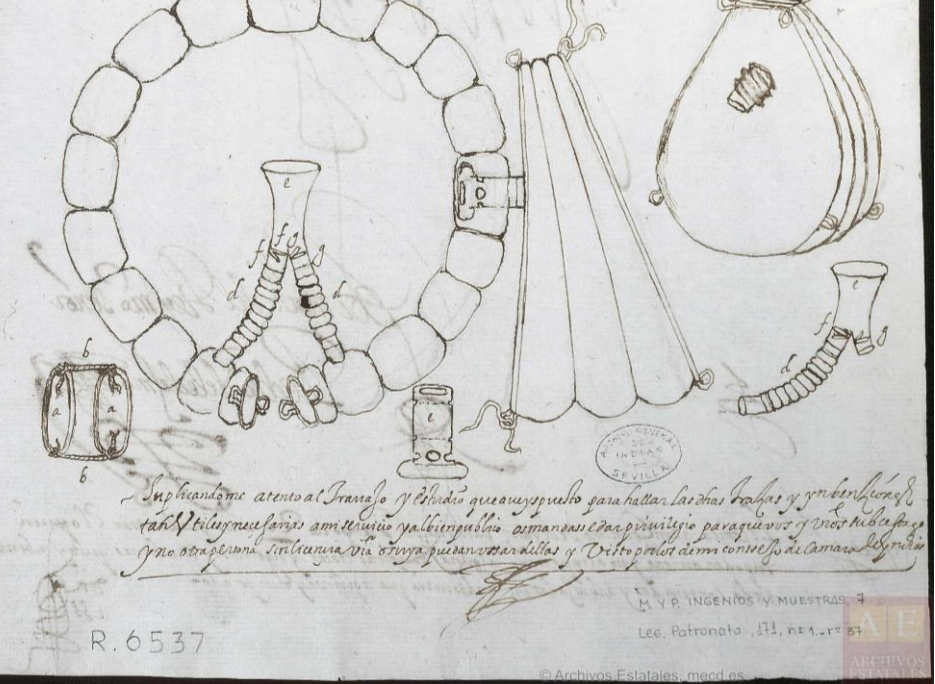 e
f f g g
d d
b
a a
b
e
e
f g
d
ARCHIVO GENERAL DE INDIAS SEVILLA
Suplicandome atento al Travajo y estudio que aveys puesto para hallar las dhas trazas y ynbenciones
tan Utiles y necesarias a mi servicio y al bien publico os mandasse dar privilegio para que vos y vros subcesores
y no otra persona sin licencia vra o suya puedan ussar dellas y Visto por los de mi consejo de Camara de yndias
M. Y P. INGENIOS Y MUESTRAS, 7
Leg. Patronato, 171, nº 1, rº 37
R. 6537
AE
ARCHIVOS ESTATALES
© Archivos Estatales, mecd.es